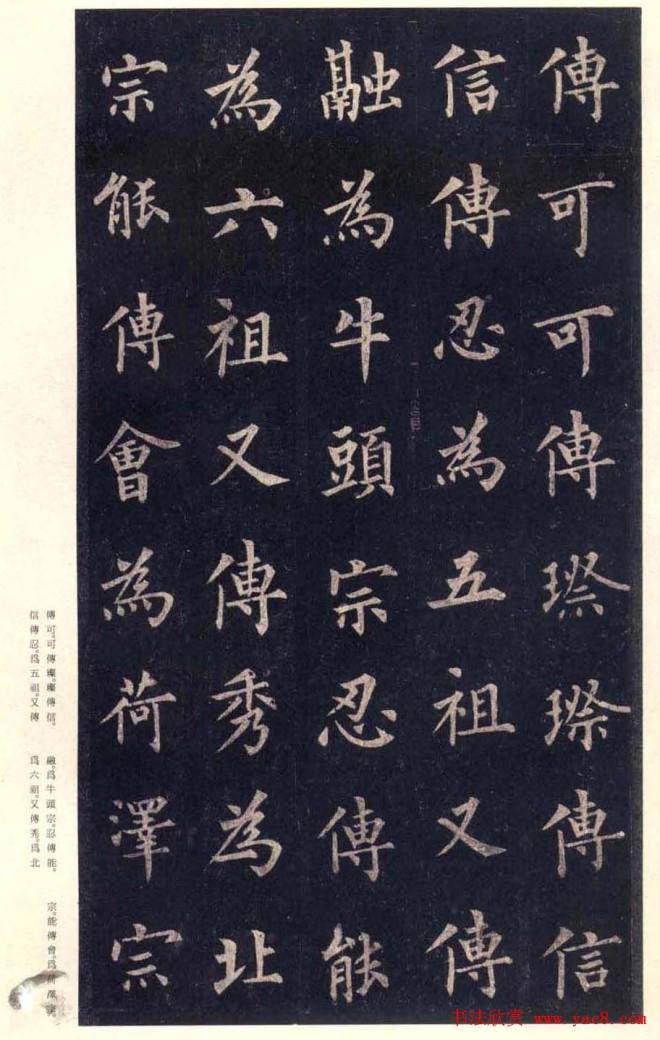 傳可可傳璨璨傳信
信傳忍為五祖又傳
融為牛頭宗忍傳能
為六祖又傳秀為北
宗能傳會為荷澤宗
傳可。可傳璨。璨傳信。
信傳忍。爲五祖。又傳
融。爲牛頭宗。忍傳能。
爲六祖。又傳秀。爲北
宗。能傳會。爲荷澤宗
书法欣赏 www.yac8.com